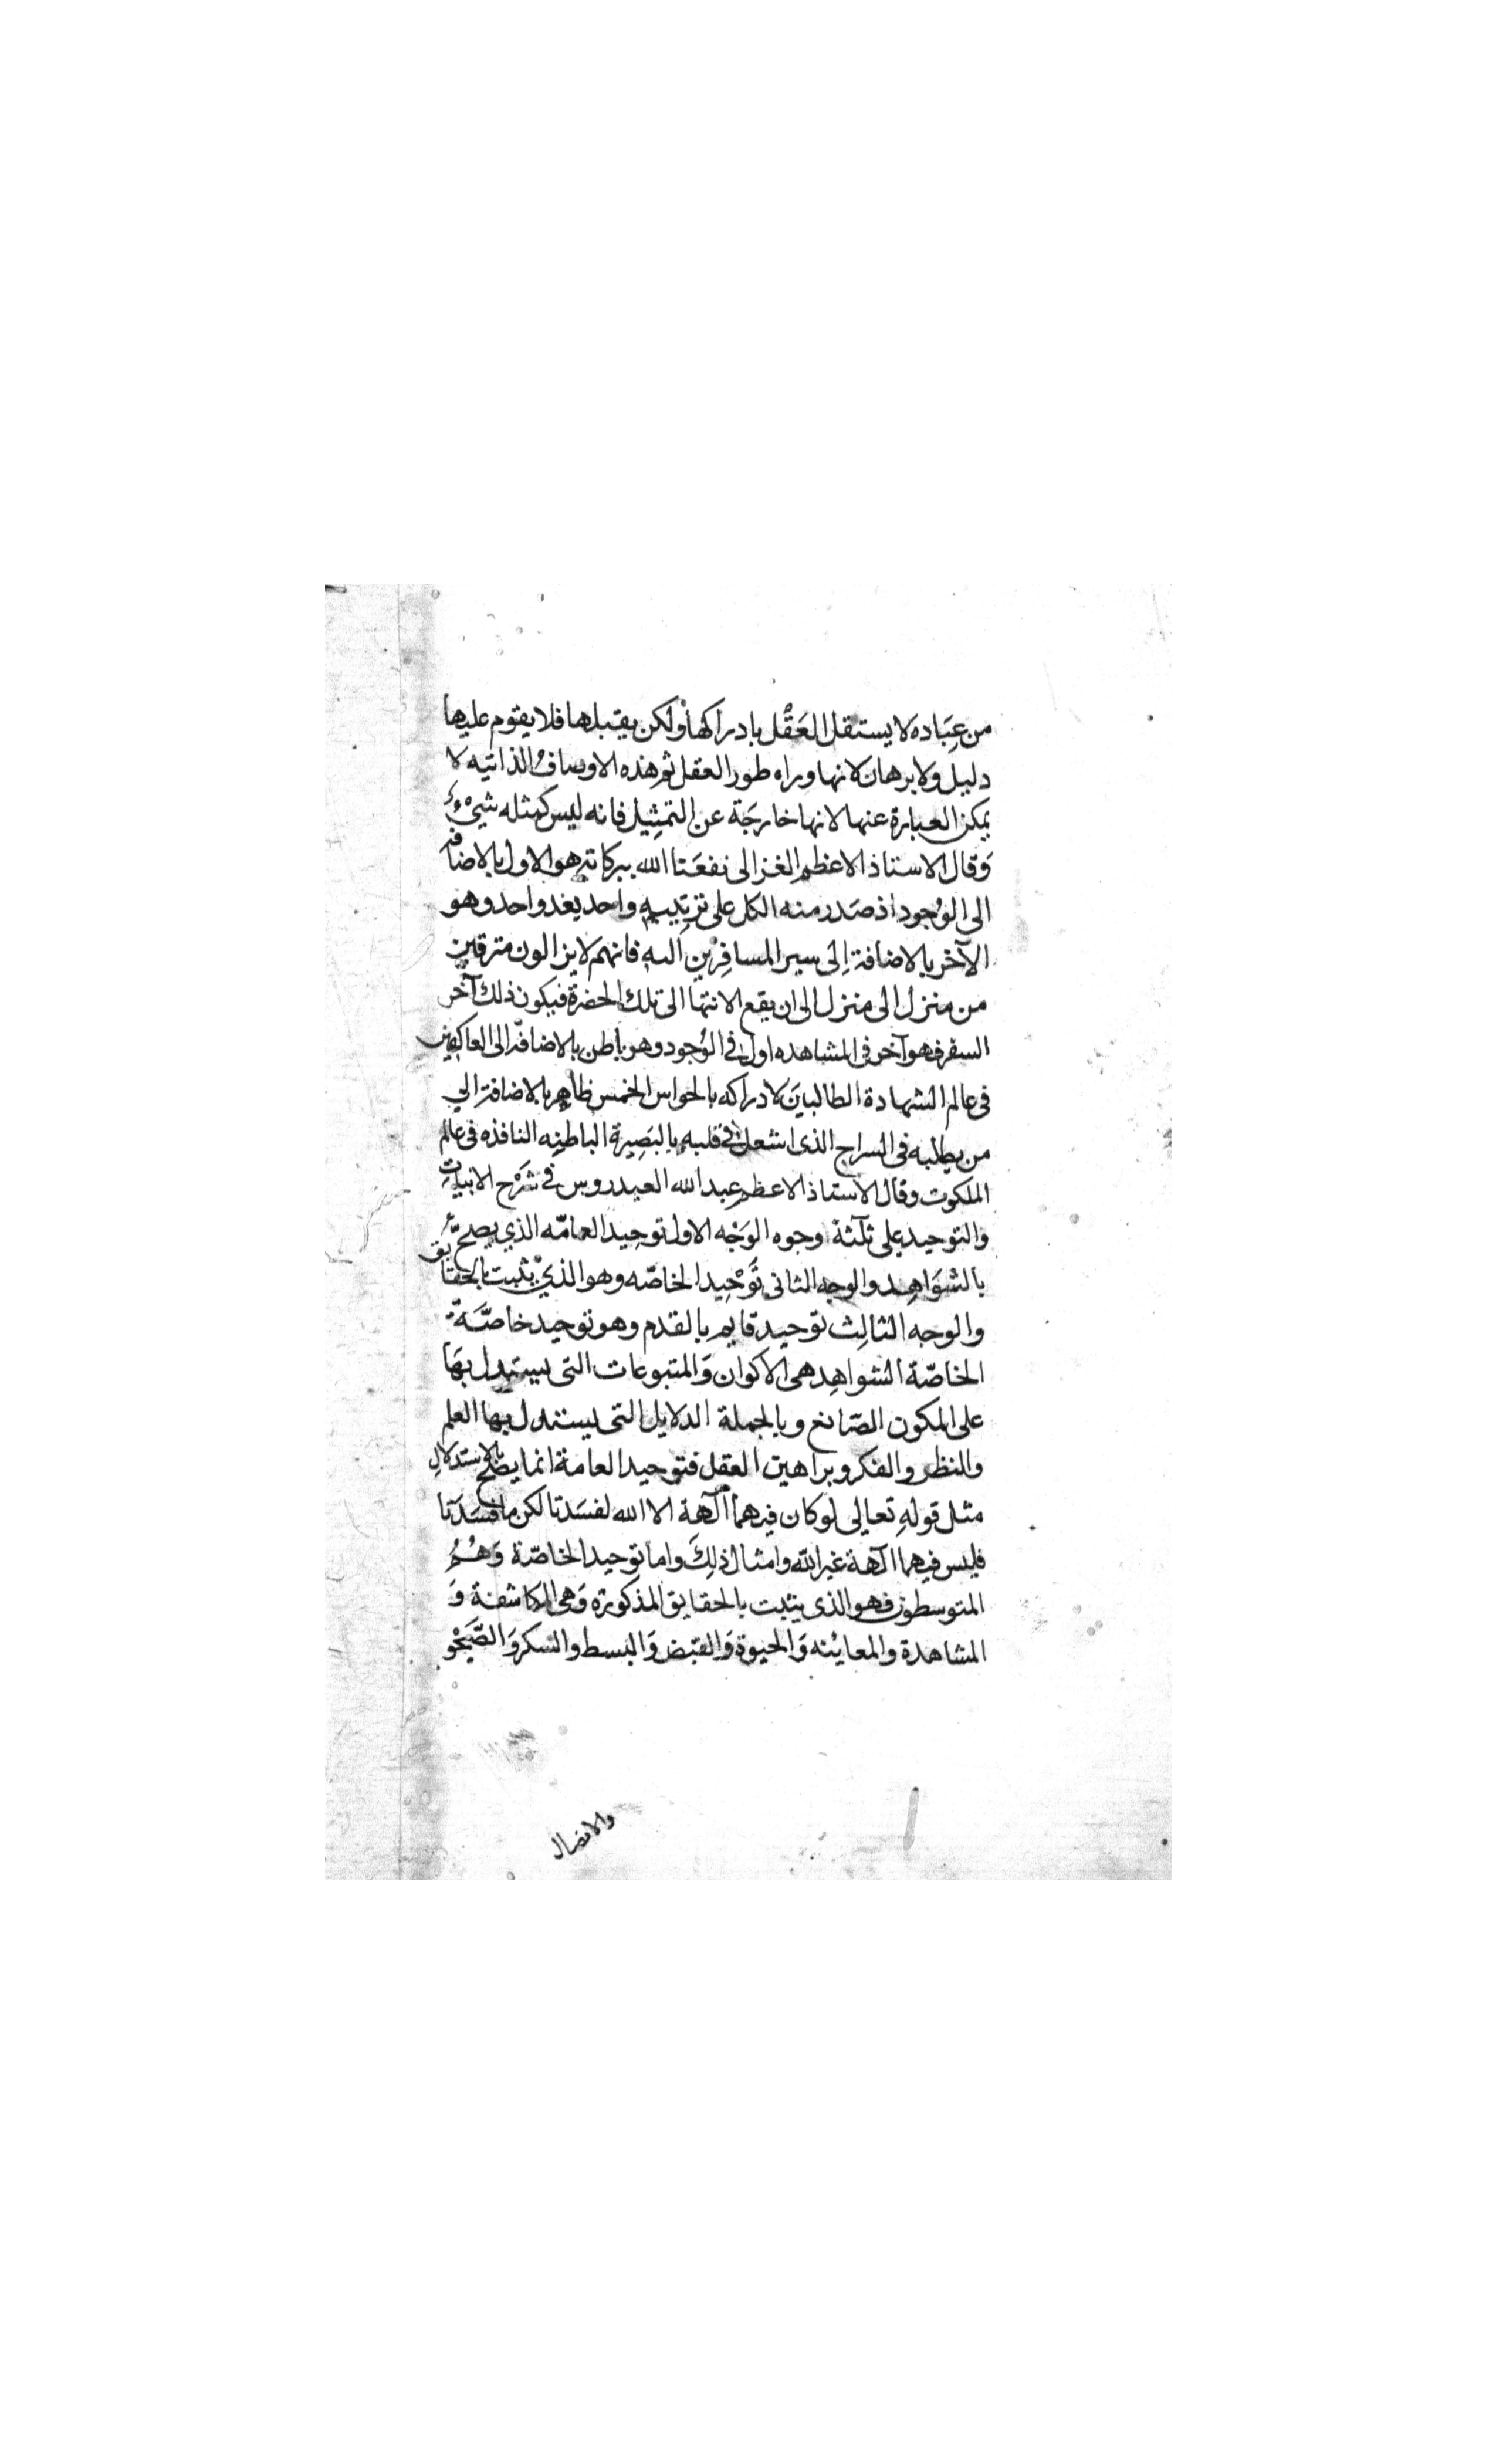 من عِبَاده لا يستقل العَقْل بادراكها ولكن يقبلها فلا يقوم عليها
دليل ولا برهان لانها وراء طور العقل ثم هذه الاوصافُ الذاتيه لا
يمكن العبارة عنها لانها خارجَة عن التمثِيل فانه ليس كمثله شيْءٌ
وَقال الاستاذ الاعظم الغزالى نفعَنا الله ببركاته هو الاول بالاضافة
الى الوُجود اذ صَدر منه الكل على ترتِيبِه واحد بعد واحد وهو
الآخر بالاضافة اِلى سير المسافِرْين اليهِ فانهم لا يزالون مترقين
من منزل الى منزل الى ان يقع الانتها الى تلك الحضرة فيكون ذلك آخر
السفر فهو آخر فى المشاهده اول فى الوُجود وهو باطن بالاضافة الى العاكفين
فى عالم الشهادة الطالبينَ لادراكه بالحواس الخمس ظاهِر بالاضافة الي
من يطلبه فى السراج الذى اشعل فى قلبه بالبَصِيرة الباطنِه النافذه فى عالم
الملكوت وقال الاستاذ الاعظم عبد الله العيدروس فى شَرْح الابياتِ
والتوحيد على ثلثة اوجوه الوَجْه الاول توحِيد العامّه الذي يصلحّ
بالشوَاهِد والوجه الثانى تَوْحْيد الخاصّه وهو الذيْ يثبت بالحقايق
والوجه الثالِث توحيد قايم بالقدم وهو توحيد خاصَّة
الخاصّة الشواهِد هى الاكوان وَالمتبوعات التى يستدل بهَا
على المكون الصّانع وبالجملة الدلايل التى يستدل بها العلم
والنظر والفكر وبراهين العقل فتوحيد العامة انما يصلح بالاستدلالِ
مثل قولهِ تعالى لو كان فيهما آلهة الا الله لفسَدتا لكن ما فسَدَتا
فليس فيهما آلهة غير الله وامثال ذلِكَ واما توحيد الخاصّة وَهُمُ
المتوسطون فهو الذى يثبت بالحقايق المذكورة وَهى المكاشفة وَ
المشاهدة والمعاينه وَالحيوة وَالقبض وَالبسط والسكر وَالصَّحْو
والاتصال